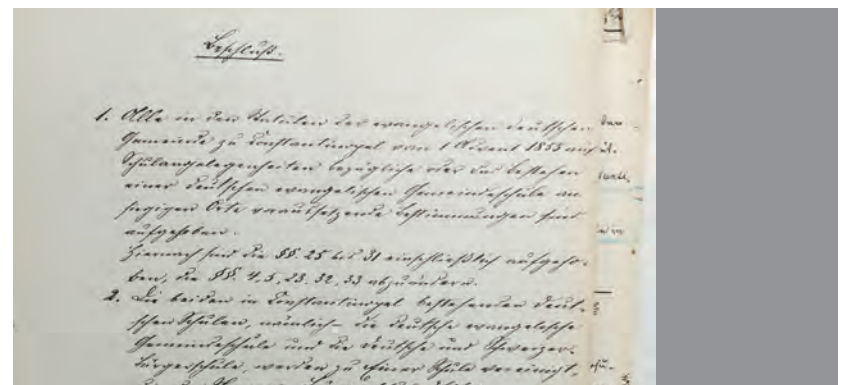 Beschluß.
1. Alle in den Statuten der evangelischen deutschen
Gemeinde zu Constantinopel vom 1 Advent 1855 auf
Schulangelegenheiten bezügliche oder das Bestehen
einer deutschen evangelischen Gemeindeschule am
hiesigen Orte voraussetzende Bestimmungen sind
aufgehoben.
Hiernach sind die §§. 25 bis 31 einschließlich aufgeho-
ben, die §§. 4, 5, 23. 32, 33 abzuändern.
2. Die beiden in Constantinopel bestehenden deut-
schen Schulen, nämlich – die deutsche evangelische
Gemeindeschule und die deutsche und Schweizer-
bürgerschule, werden zu einer Schule vereinigt,